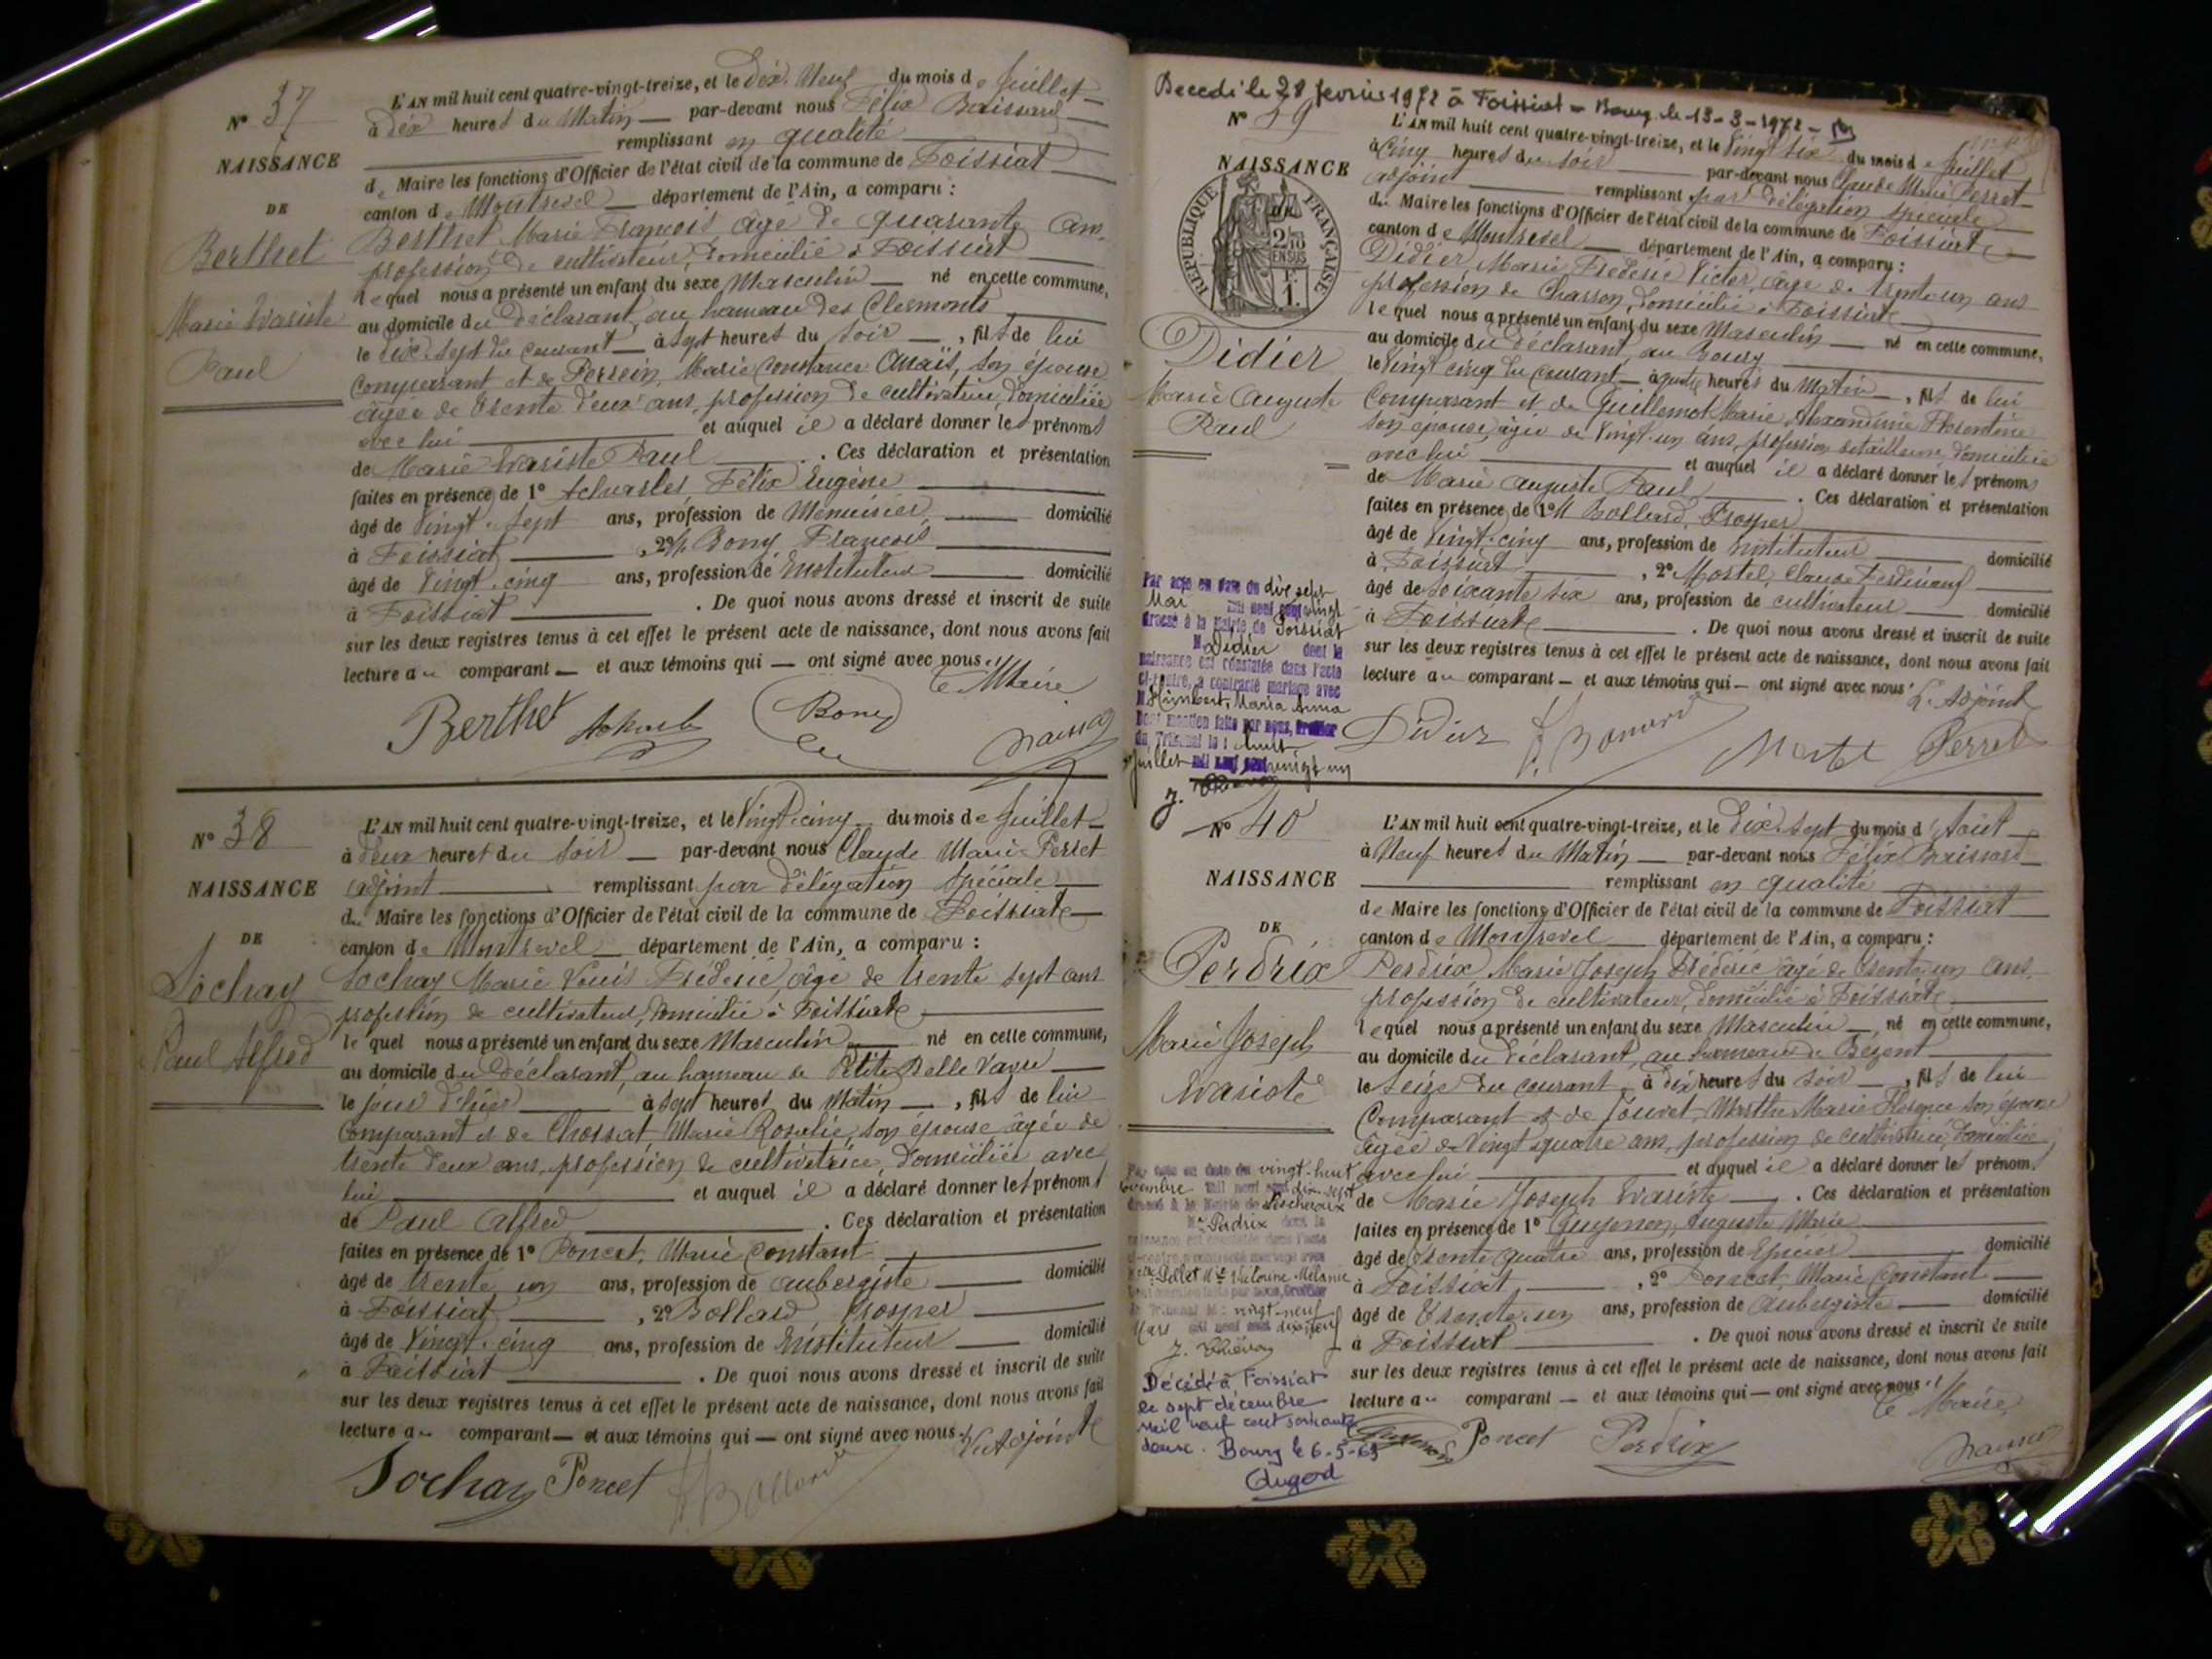 N° 37
NAISSANCE
DE
Berthet
Marie Evariste
Paul
L'AN mil huit cent quatre-vingt-treize, et le dix Neuf du mois de Juillet
à dix heures du Matin par-devant nous Félix
remplissant en qualité
de Maire les fonctions d'Officier de l'état civil de la commune de Foissiat
canton de Montrevel département de l'Ain, a comparu :
Berthet Marie François âgé de quarante ans,
profession de cultivateur, domicilié à Foissiat
lequel nous a présenté un enfant du sexe Masculin né en cette commune,
au domicile du déclarant, au hameau des Clermonts
le dix-sept du courant à sept heures du soir , fils de lui
Comparant et de Perrein, Marie Constance Anaïs, son épouse
âgée de trente deux ans, profession de cultivatrice, domiciliée
avec lui et auquel il a déclaré donner les prénoms
de Marie Evariste Paul . Ces déclaration et présentation
faites en présence de 1° Félix Eugène
âgé de vingt-sept ans, profession de Menuisier domicilié
à Foissiat , 2° M. Bony François
âgé de vingt-cinq ans, profession de Instituteur domicilié
à Foissiat . De quoi nous avons dressé et inscrit de suite
sur les deux registres tenus à cet effet le présent acte de naissance, dont nous avons fait
lecture au comparant et aux témoins qui ont signé avec nous.
Le Maire
Berthet Bony
N° 38
NAISSANCE
DE
Sochay
Paul Alfred
L'AN mil huit cent quatre-vingt-treize, et le Vingt-cinq du mois de Juillet
à deux heures du soir par-devant nous Claude Marie Perret
adjoint remplissant par délégation spéciale
du Maire les fonctions d'Officier de l'état civil de la commune de Foissiat
canton de Montrevel département de l'Ain, a comparu :
Sochay Marie Louis Frédéric, âgé de trente sept ans
profession de cultivateur, domicilié à Foissiat
lequel nous a présenté un enfant du sexe Masculin né en cette commune,
au domicile du déclarant, au hameau de Petite Belle Vavre
le jour d'hier à sept heures du Matin , fils de lui
Comparant et de Chossat Marie Rosalie, son épouse âgée de
trente deux ans, profession de cultivatrice, domiciliée avec
lui et auquel il a déclaré donner les prénoms
de Paul Alfred . Ces déclaration et présentation
faites en présence de 1° Poncet, Marie Constant
âgé de trente un ans, profession de aubergiste domicilié
à Foissiat , 2° Bollard Prosper
âgé de Vingt-cinq ans, profession de Instituteur domicilié
à Foissiat . De quoi nous avons dressé et inscrit de suite
sur les deux registres tenus à cet effet le présent acte de naissance, dont nous avons fait
lecture au comparant et aux témoins qui ont signé avec nous.
L'Adjoint
Sochay Poncet Bollard
Decedé le 28 fevrier 1972 à Foissiat - Bourg le 13-3-1972
N° 39
NAISSANCE
DE
RÉPUBLIQUE FRANÇAISE
2/10 EN SUS
F. 1.
Didier
Marie Auguste
Paul
L'AN mil huit cent quatre-vingt-treize, et le Vingt six du mois de Juillet
à Cinq heures du soir par-devant nous Claude Marie Perret
adjoint remplissant par délégation spéciale
du Maire les fonctions d'Officier de l'état civil de la commune de Foissiat
canton de Montrevel département de l'Ain, a comparu :
Didier Marie Frédéric Victor, âgé de trente un ans
profession de Charron, domicilié à Foissiat
lequel nous a présenté un enfant du sexe Masculin né en cette commune,
au domicile du déclarant, au Bourg
le Vingt cinq du courant à quatre heures du Matin , fils de lui
Comparant et de Guillemot Marie Alexandrine Florentine
son épouse, âgée de Vingt-un ans, profession de tailleuse, domiciliée
avec lui et auquel il a déclaré donner les prénoms
de Marie Auguste Paul . Ces déclaration et présentation
faites en présence de 1° M. Bollard, Prosper
âgé de Vingt-cinq ans, profession de instituteur domicilié
à Foissiat , 2° Mortel, Claude Ferdinand
âgé de soixante six ans, profession de cultivateur domicilié
à Foissiat . De quoi nous avons dressé et inscrit de suite
sur les deux registres tenus à cet effet le présent acte de naissance, dont nous avons fait
lecture au comparant et aux témoins qui ont signé avec nous.
L'Adjoint
Didier Mortel Perret
Par acte en date du dix sept
Mai mil neuf cent vingt
dressé à la mairie de Foissiat
M. Didier dont la
naissance est constatée dans l'acte
ci-contre, a contracté mariage avec
M. Humbert, Maria Anna
Dont mention faite par nous, Greffier
du Tribunal le : huit
Juillet mil neuf cent vingt un
N° 40
NAISSANCE
DE
Perdrix
Marie Joseph
Evariste
L'AN mil huit cent quatre-vingt-treize, et le dix-sept du mois d'Août
à Neuf heures du Matin par-devant nous Félix
remplissant en qualité
de Maire les fonctions d'Officier de l'état civil de la commune de Foissiat
canton de Montrevel département de l'Ain, a comparu :
Perdrix Marie Joseph Frédéric âgé de trente un ans
profession de cultivateur, domicilié à Foissiat
lequel nous a présenté un enfant du sexe Masculin né en cette commune,
au domicile du déclarant, au hameau de
le seize du courant à dix heures du soir , fils de lui
Comparant et de Jouvet, Marthe Marie Florence son épouse
âgée de Vingt quatre ans, profession de cultivatrice, domiciliée
avec lui et auquel il a déclaré donner les prénoms
de Marie Joseph Evariste . Ces déclaration et présentation
faites en présence de 1° Guyenon, Auguste Marie
âgé de trente quatre ans, profession de Epicier domicilié
à Foissiat , 2° Poncet Marie Constant
âgé de trente-un ans, profession de Aubergiste domicilié
à Foissiat . De quoi nous avons dressé et inscrit de suite
sur les deux registres tenus à cet effet le présent acte de naissance, dont nous avons fait
lecture au comparant et aux témoins qui ont signé avec nous.
Le Maire
Poncet Perdrix
Par acte en date du vingt-huit
mil neuf cent dix-sept
dressé à la Mairie de Lescheroux
M. Perdrix dont la
naissance est constatée dans l'acte
ci-contre a contracté mariage avec
Mélanie
vingt-neuf
Mars
Décédé à Foissiat
le sept décembre
mil neuf cent soixante
deux. Bourg le 6-5-63